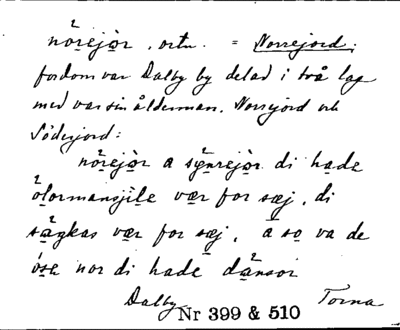 nörejòr, ortn. = Norrejord;
fordom var Dalby by delad i två lag
med var sin ålderman, Norrejord och
Söderjord:
nörejòr a sønrejòr di hade
ölormansjile vær for sæj, di
vær for sæj, a so va de
nor di hade dansor
Dalby Torna
Nr 399 & 510